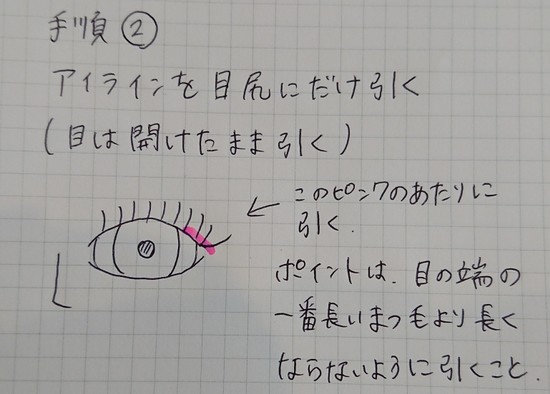 手順②
アイラインを目尻にだけ引く
(目は開けたまま引く)
← このピンクのあたりに
引く.
ポイントは、目の端の
一番長いまつ毛より長く
ならないように引くこと.